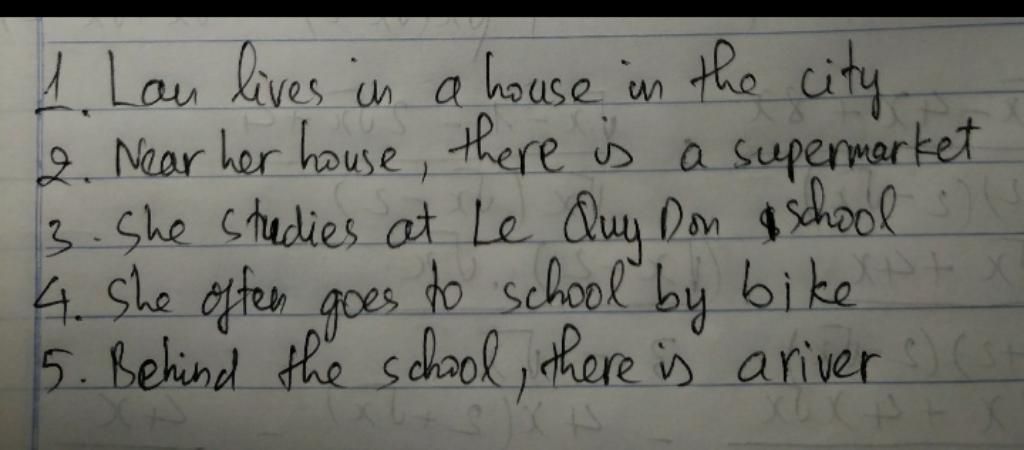 1. Lan lives in a house in the city
2. Near her house, there is a supermarket
3. She studies at Le Quy Don school
4. She often goes to school by bike
5. Behind the school, there is a river